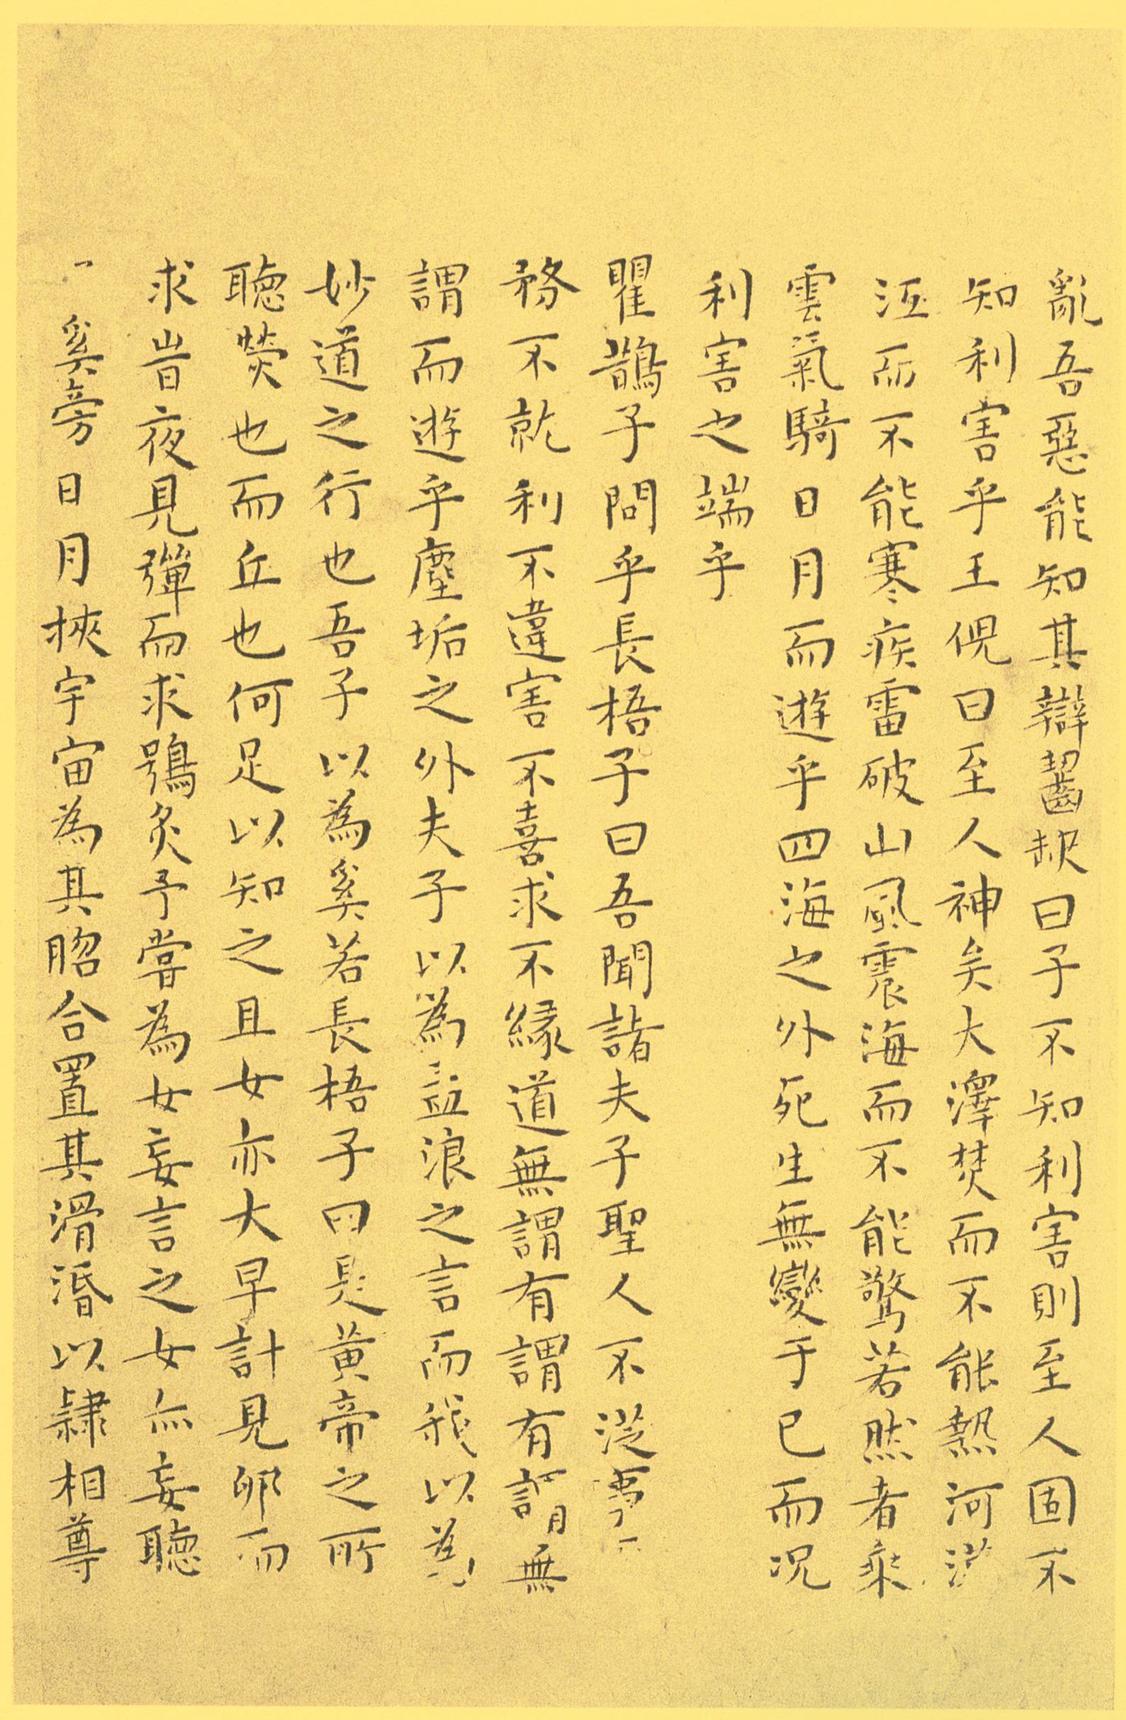 亂吾惡能知其辯齧缺曰子不知利害則至人固不
知利害乎王倪曰至人神矣大澤焚而不能熱河漢
沍而不能寒疾雷破山風震海而不能驚若然者乘
雲氣騎日月而遊乎四海之外死生無變于已而况
利害之端乎
瞿鵲子問乎長梧子曰吾聞諸夫子聖人不從事
務不就利不違害不喜求不緣道無謂有謂有謂無
謂而遊乎塵垢之外夫子以為孟浪之言而我以為
妙道之行也吾子以為奚若長梧子曰是黃帝之所
聽熒也而丘也何足以知之且女亦大早計見卵而
求旹夜見彈而求鴞炙予嘗為女妄言之女亦妄聽
奚旁日月挾宇宙為其脗合置其滑涽以隸相尊